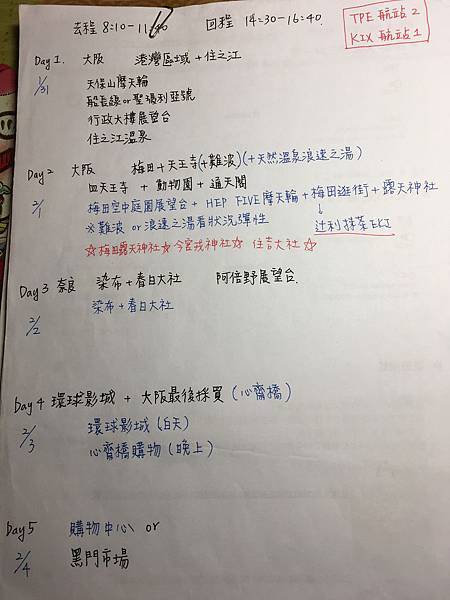 去程 8:10-11:40 回程 14:30-16:40.
TPE 航站2
KIX 航站1
Day 1. 大阪 港灣區域 + 住之江
1/31 天保山摩天輪
聖福利亞號
行政大樓展望台
住之江溫泉
Day 2 大阪 梅田+天王寺(+難波)(+天然溫泉浪速之湯)
四天王寺 + 動物園 + 通天閣
2/1 梅田空中庭園展望台 + HEP FIVE摩天輪 + 梅田逛街 + 露天神社
※難波 or 浪速之湯看狀況彈性
↓
辻利抹茶EKI
☆梅田露天神社☆今宮戎神社☆ 住吉大社☆
Day 3 奈良 染布+春日大社 阿倍野展望台.
2/2 染布+春日大社
Day 4 環球影城 + 大阪最後採買(心齋橋)
2/3 環球影城(白天)
心齋橋購物(晚上)
Day 5 購物中心 or
2/4 黑門市場